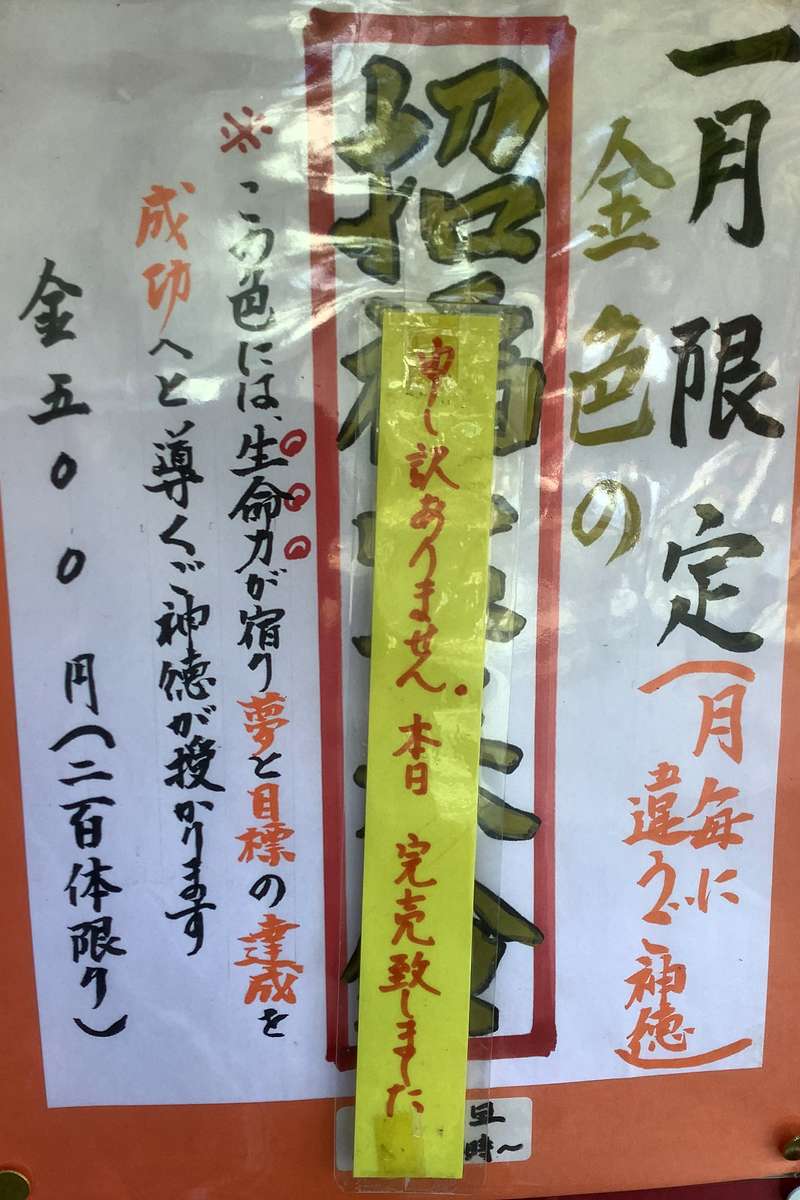 一月限定(月毎に
違うご神徳)
金色の
招福
申し訳ありません。本日 完売致しました
※この色には、生命力が宿り夢と目標の達成を
成功へと導くご神徳が授かります
金五00円(二百体限り)
時~